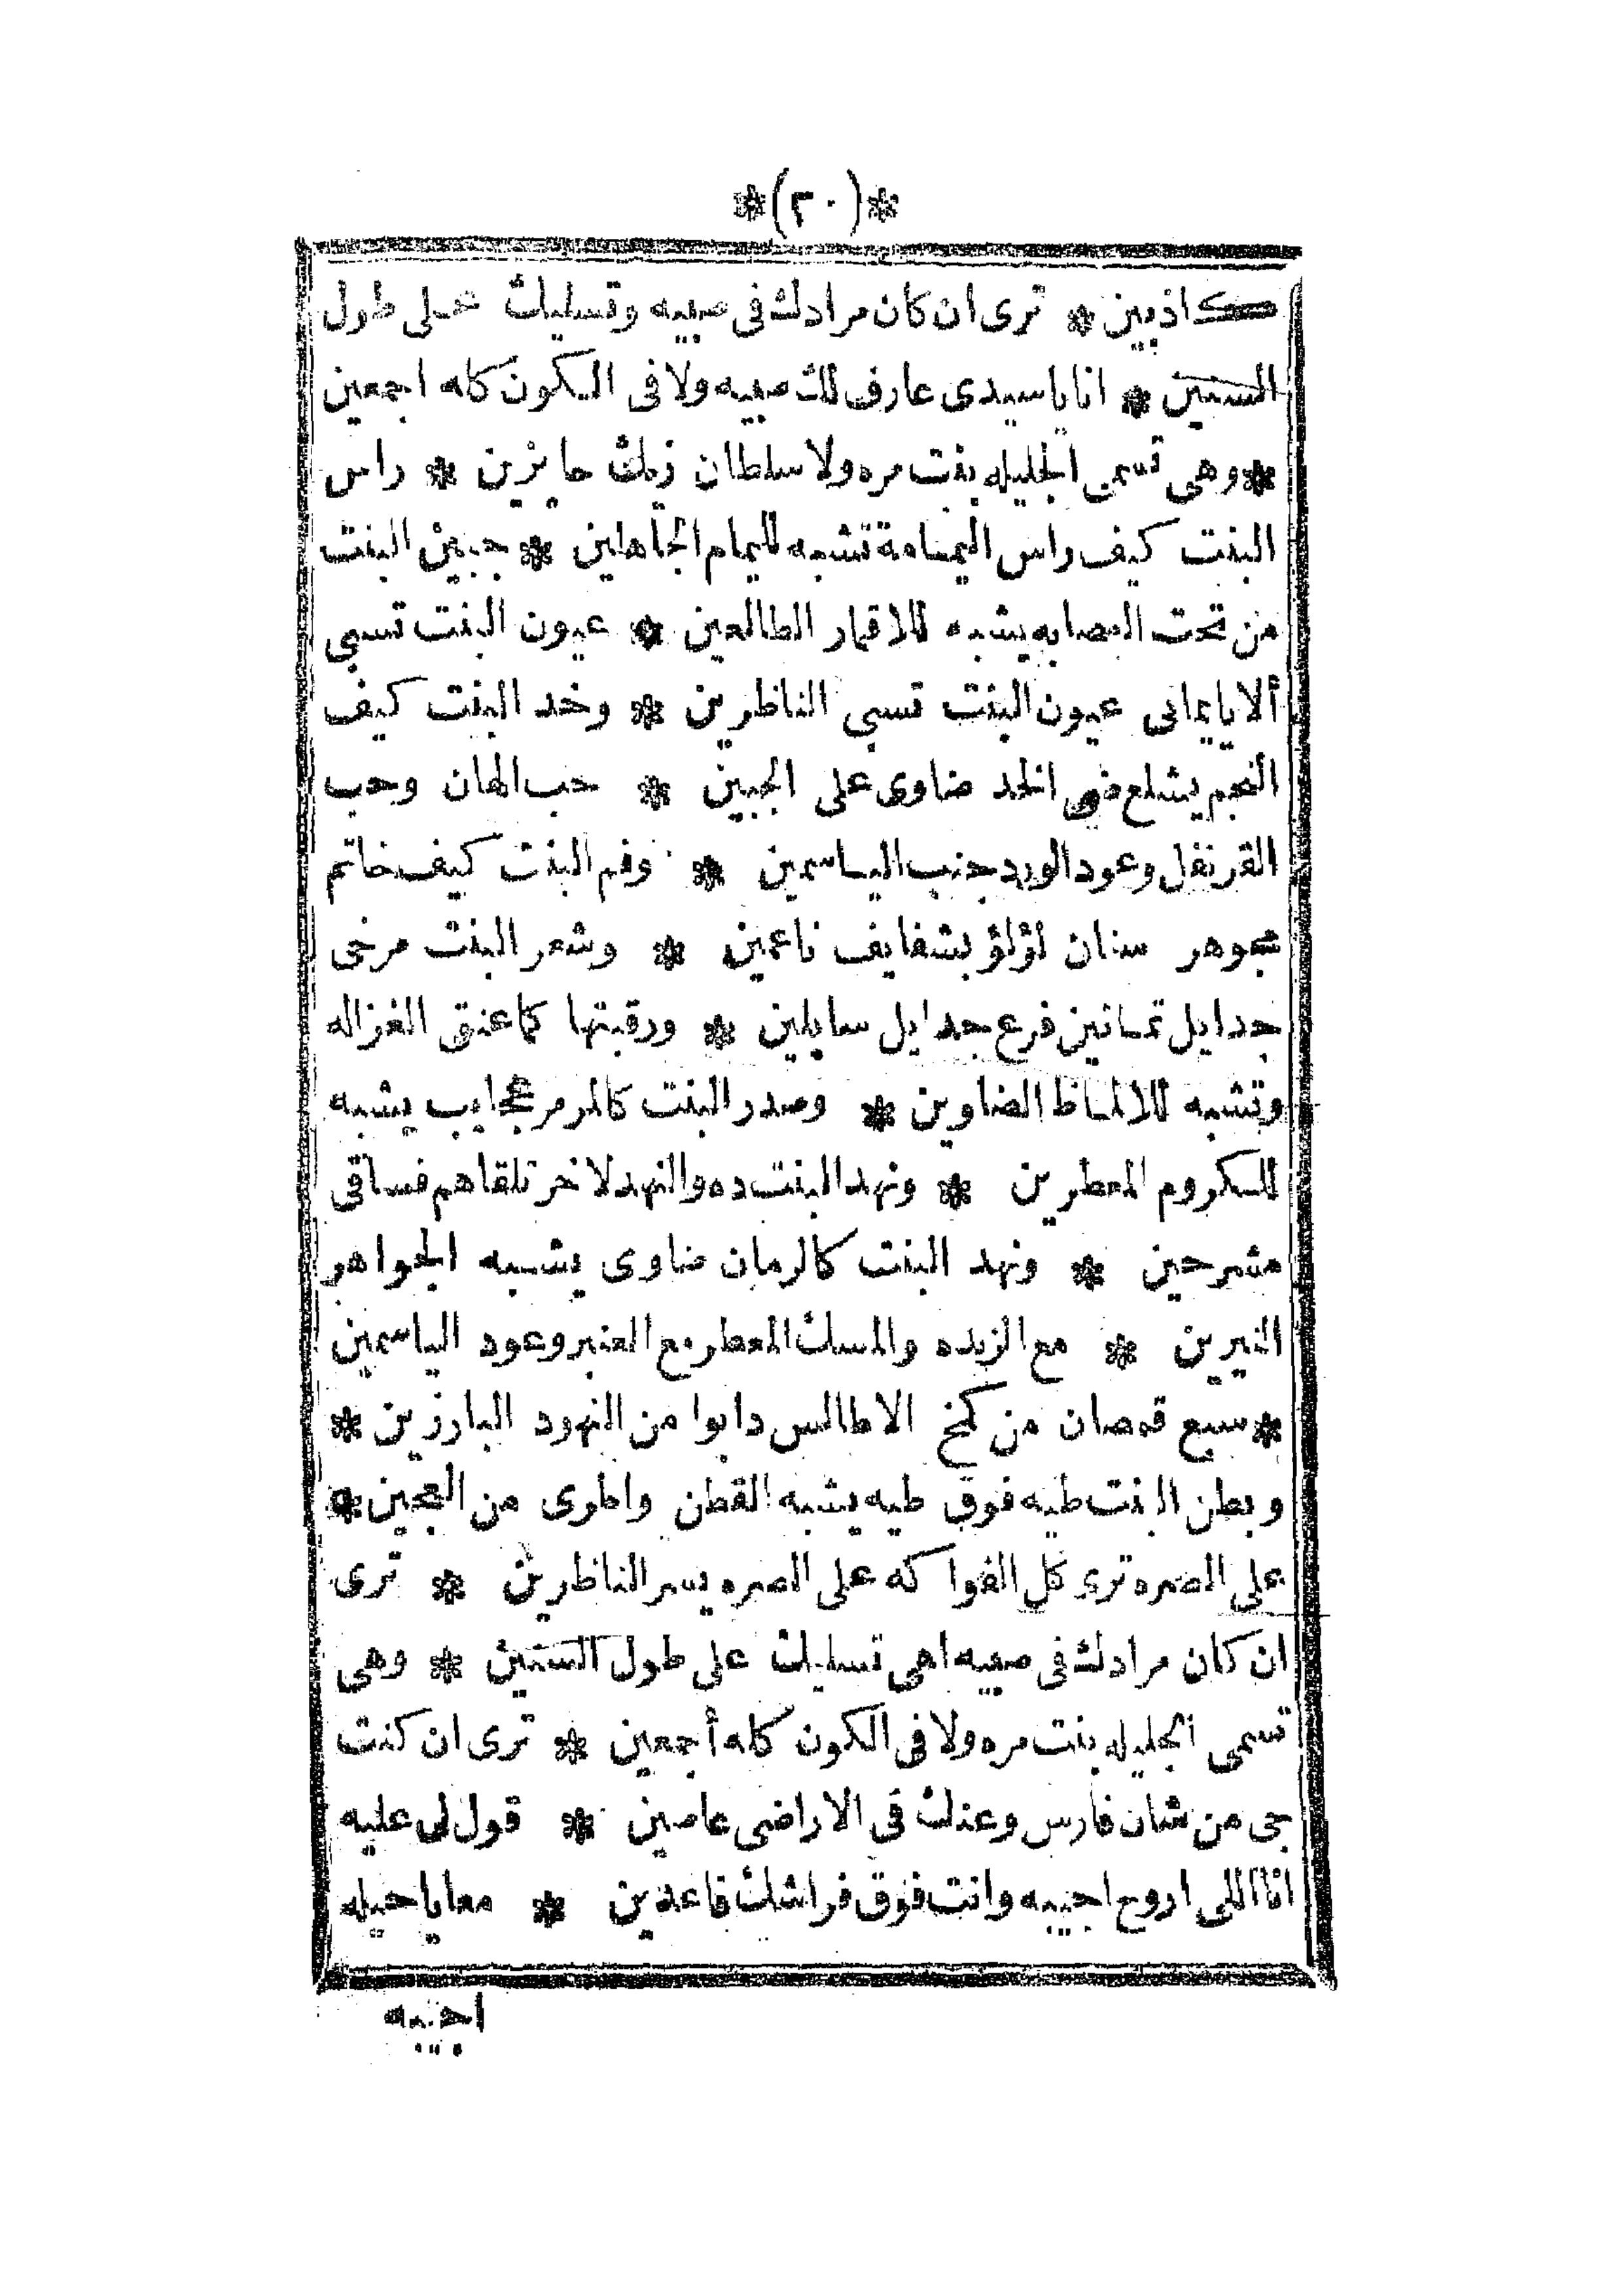 *(٢٠)*
كاذبين * ترى ان كان مرادك فى صبيه وتسليك على طول
السنين * انا ياسيدى عارف لك صبيه ولا فى الكون كله اجمعين
* وهى تسمى الجليله بنت مره ولا سلطان زيك حايزين * راس
البنت كيف راس اليمامة تشبه لليمام الجاهلين * جبين البنت
من تحت العصابه يشبه للاقمار الطالعين * عيون البنت تسبى
ألا يايمانى عيون البنت تسبى الناظرين * وخد البنت كيف
النجم يشلع ضى الخد ضاوى على الجبين * حب الهان وحب
القرنفل وعود الورد جنب الياسمين * وفم البنت كيف خاتم
مجوهر سنان لؤلؤ بشفايف ناعمين * وشعر البنت مرخى
جدايل تمانين فرع جدايل سابلين * ورقبتها كما عنق الغزاله
وتشبه للالماظ الضاوين * وصدر البنت كالمرمر عجايب يشبه
للسكروم المعطرين * ونهد البنت ده والنهد لاخر تلقاهم فساقى
مشرحين * ونهد البنت كالرمان ضاوى يشبه الجواهر
النيرين * مع الزبده والمسك المعطر مع العنبر وعود الياسمين
* سبع قمصان من كمخ الاطالس دابوا من النهود البارزين *
وبطن البنت طيه فوق طيه يشبه القطن واطرى من العجين *
على الصره ترى كل الفواكه على الصره يسر الناظرين * ترى
ان كان مرادك فى صبيه اهى تسليك على طول السنين * وهى
تسمى الجليله بنت مره ولا فى الكون كله أجمعين * ترى ان كنت
جى من شان فارس وعندك فى الاراضى عاصين * قول لى عليه
انا اللى اروح اجيبه وانت فوق فراشك قاعدين * معايا حيله
اجيبه